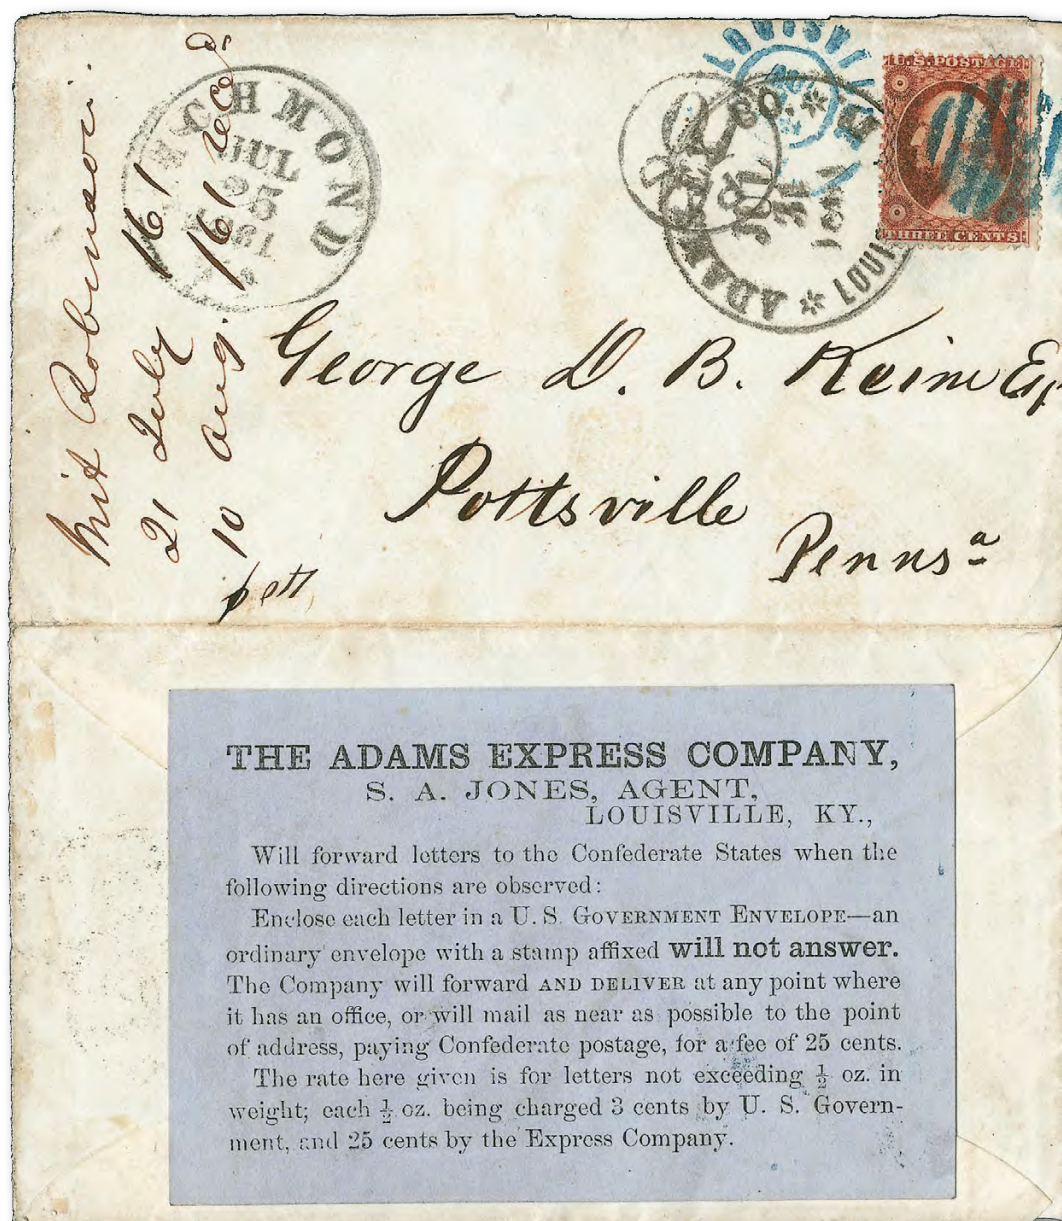 RICHMOND
JUL
25
1861
LOUISVILLE
ADAMS EX. CO.
JUL
31
1861
LOUIS
U.S. POSTAGE
THREE CENTS
Robinson.
21 July 161
10 Aug. 161 recd.
George D. B. Keim Esq
Pottsville
Penns a
THE ADAMS EXPRESS COMPANY,
S. A. JONES, AGENT,
LOUISVILLE, KY.,
Will forward letters to the Confederate States when the
following directions are observed:
Enclose each letter in a U. S. GOVERNMENT ENVELOPE—an
ordinary envelope with a stamp affixed will not answer.
The Company will forward AND DELIVER at any point where
it has an office, or will mail as near as possible to the point
of address, paying Confederate postage, for a fee of 25 cents.
The rate here given is for letters not exceeding ½ oz. in
weight; each ½ oz. being charged 3 cents by U. S. Govern-
ment, and 25 cents by the Express Company.